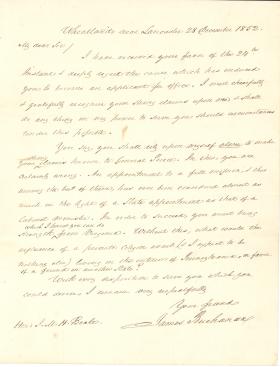 Wheatland near Lancaster 28 December 1852.
My dear Sir/
I have received your favor of the 24th
Instant & deeply regret the cause which has induced
you to become an applicant for office. I most cheerfully
& gratefully recognize your strong claims upon me; & shall
do any thing in my power to serve you should
under this
You say, you shall rely upon myself alone to make
your claims known to General Pierce. In this, you are
certainly wrong. An appointment to a full mission, & this
among the best of them, has ever been considered almost as
much in the light of a State appointment as that of a
Cabinet Minister. In order to succeed, you must bring
which I know you can do
strength from Maryland. Without this, what would the
influence of a private citizen avail (& I expect to be
nothing else) living in the of Pennsylvania, in favor
of a friend in another State?
With every disposition to serve you which you
could desire, I remain very respectfully
Your friend
James Buchanan
Hon: J. M. H. Beale.